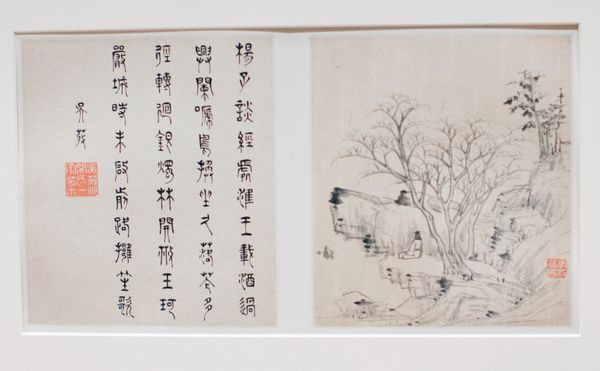 楊子談經處淮王載酒過
興闌嗁鳥換坐久落花多
徑轉迴銀燭林開散玉珂
嚴城時未啟前路擁笙歌
吳